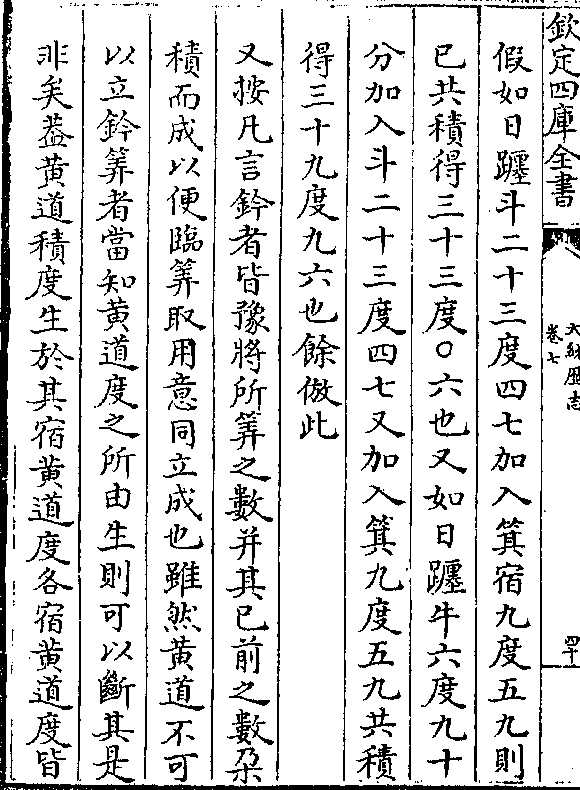 欽定四庫全書
大統歴志
卷七
四十
假如日躔斗二十三度四七加入箕宿九度五九則
已共積得三十三度〇六也又如日躔牛六度九十
分加入斗二十三度四七又加入箕九度五九共積
得三十九度九六也餘倣此
又按凡言鈐者皆豫將所筭之數并其已前之數朶
積而成以便臨筭取用意同立成也雖然黄道不可
以立鈐筭者當知黄道度之所由生則可以斷其是
非矣葢黄道積度生於其宿黄道度各宿黄道度皆